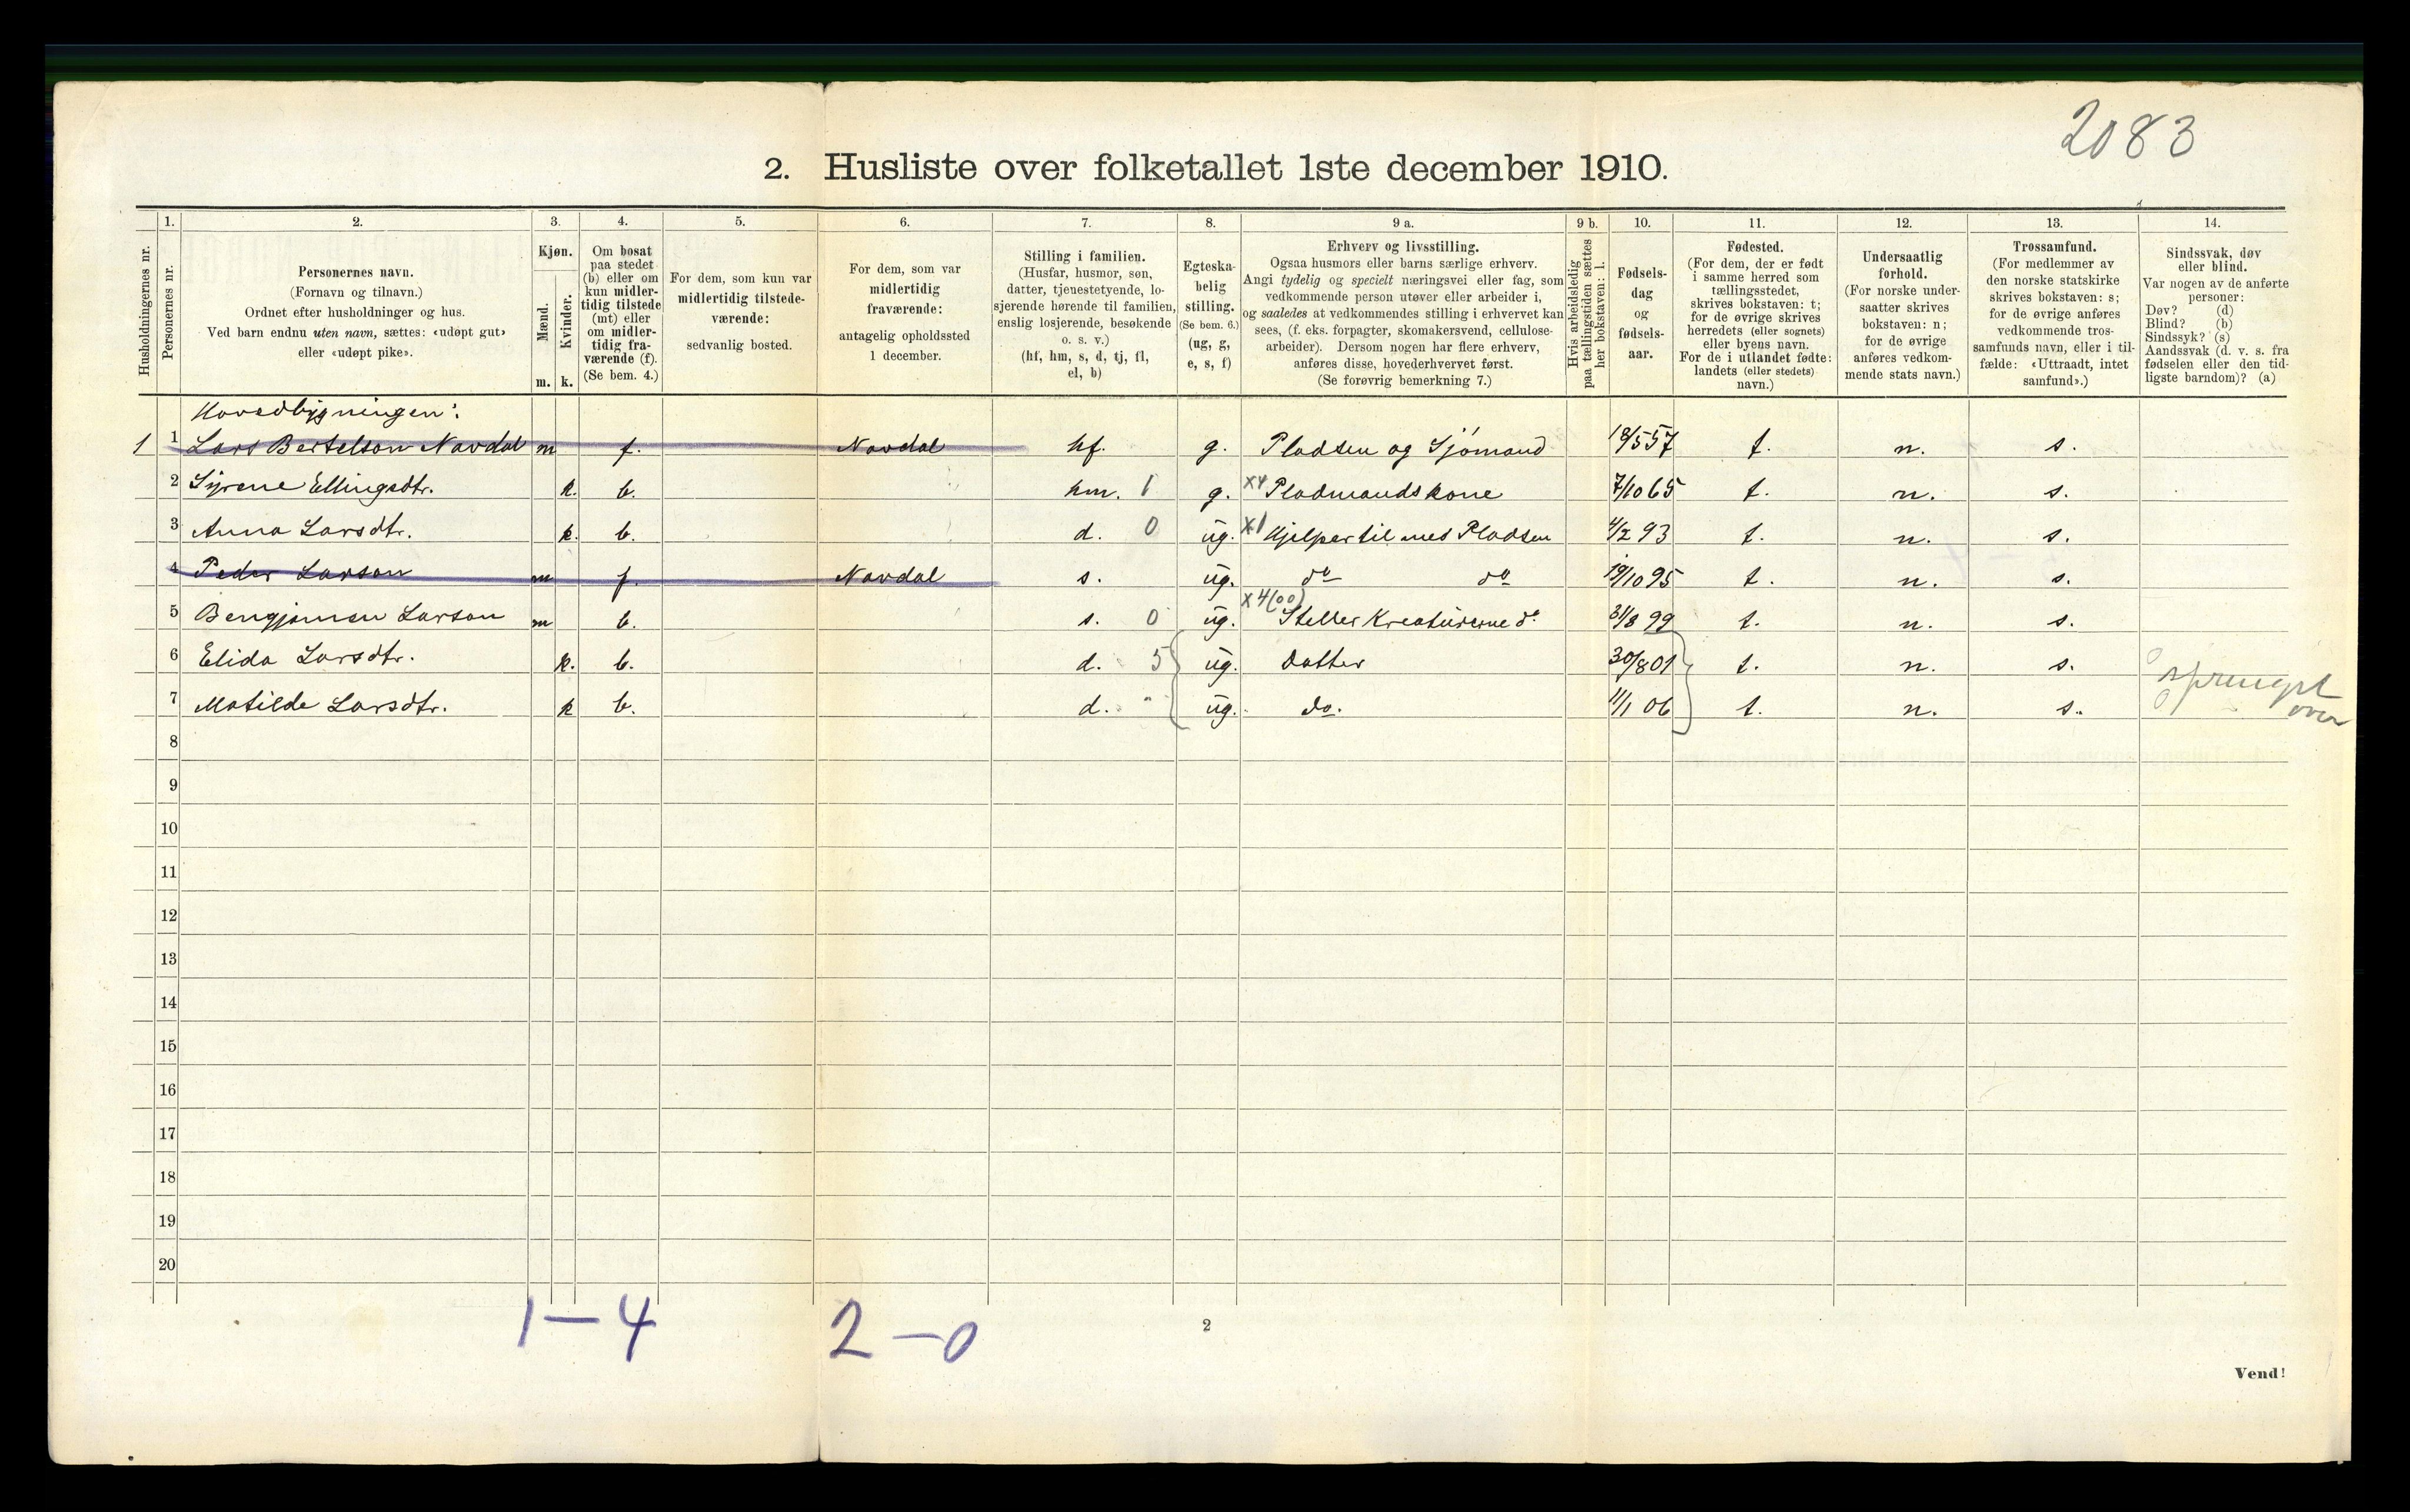 2083
2. Husliste over folketallet 1ste december 1910.
Husholdningernes nr.
1.
Personernes nr.
2.
Personernes navn.
(Fornavn og tilnavn.)
Ordnet efter husholdninger og hus.
Ved barn endnu uten navn, sættes: «udøpt gut»
eller «udøpt pike».
3.
Kjøn.
Mænd.
m.
Kvinder.
k.
4.
Om bosat
paa stedet
(b) eller om
kun midler-
tidig tilstede
(mt) eller
om midler-
tidig fra-
værende (f).
(Se bem. 4.)
5.
For dem, som kun var
midlertidig tilstede-
værende:
sedvanlig bosted.
6.
For dem, som var
midlertidig
fraværende:
antagelig opholdssted
1 december.
7.
Stilling i familien.
(Husfar, husmor, søn,
datter, tjenestetyende, lo-
sjerende hørende til familien,
enslig losjerende, besøkende
o. s. v.)
(hf, hm, s, d, tj, fl,
el, b)
8.
Egteska-
belig
stilling.
(Se bem. 6.)
(ug, g,
e, s, f)
9 a.
Erhverv og livsstilling.
Ogsaa husmors eller barns særlige erhverv.
Angi tydelig og specielt næringsvei eller fag, som
vedkommende person utøver eller arbeider i,
og saaledes at vedkommendes stilling i erhvervet kan
sees, (f. eks. forpagter, skomakersvend, cellulose-
arbeider). Dersom nogen har flere erhverv,
anføres disse, hovederhvervet først.
(Se forøvrig bemerkning 7.)
9 b.
Hvis arbeidsledig
paa tællingstiden sættes
her bokstaven: l.
10.
Fødsels-
dag
og
fødsels-
aar.
11.
Fødested.
(For dem, der er født
i samme herred som
tællingsstedet,
skrives bokstaven: t;
for de øvrige skrives
herredets (eller sognets)
eller byens navn.
For de i utlandet fødte:
landets (eller stedets)
navn.)
12.
Undersaatlig
forhold.
(For norske under-
saatter skrives
bokstaven: n;
for de øvrige
anføres vedkom-
mende stats navn.)
13.
Trossamfund.
(For medlemmer av
den norske statskirke
skrives bokstaven: s;
for de øvrige anføres
vedkommende tros-
samfunds navn, eller i til-
fælde: «Uttraadt, intet
samfund».)
14.
Sindssvak, døv
eller blind.
Var nogen av de anførte
personer:
Døv? (d)
Blind? (b)
Sindssyk? (s)
Aandssvak (d. v. s. fra
fødselen eller den tid-
ligste barndom)? (a)
Hovedbygningen:
1 1 Lars Bertelson Navdal m f. Navdal hf. g. Pladsen og Sjømand 18/5 57 t. n. s.
2 Syrene Ellingsdtr. k. b. hm. 1 g. x4 Pladmandskone 7/10 65 t. n. s.
3 Anna Larsdtr. k. b. d. 0 ug. x1 Hjelper til med Pladsen 4/2 93 t. n. s.
4 Peder Larson m f. Navdal s. ug. do do 19/10 95 t. n. s.
5 Bengjamen Larson m b. s. 0 ug. x4(00) Steller Kreaturerne do 31/8 99 t. n. s.
6 Elida Larsdtr. k. b. d. 5 ug. Datter 30/8 01 t. n. s. 0
7 Matilde Larsdtr. k b. d. " ug. do. 11/1 06 t. n. s. 0
sprunget
over
8
9
10
11
12
13
14
15
16
17
18
19
20
1 — 4 2 — 0
2
Vend!